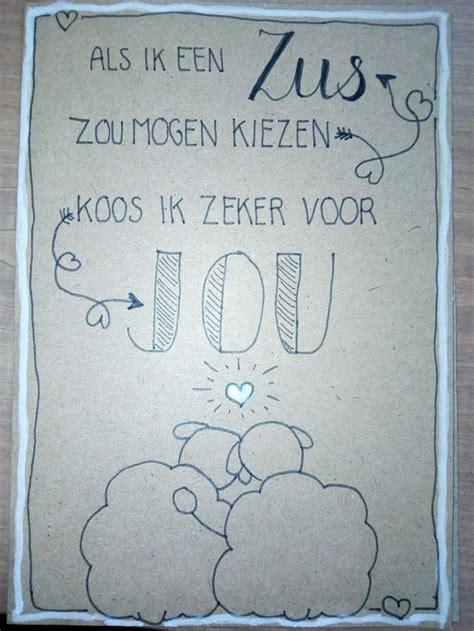 ALS IK EEN Zus
ZOU MOGEN KIEZEN
KOOS IK ZEKER VOOR
JOU